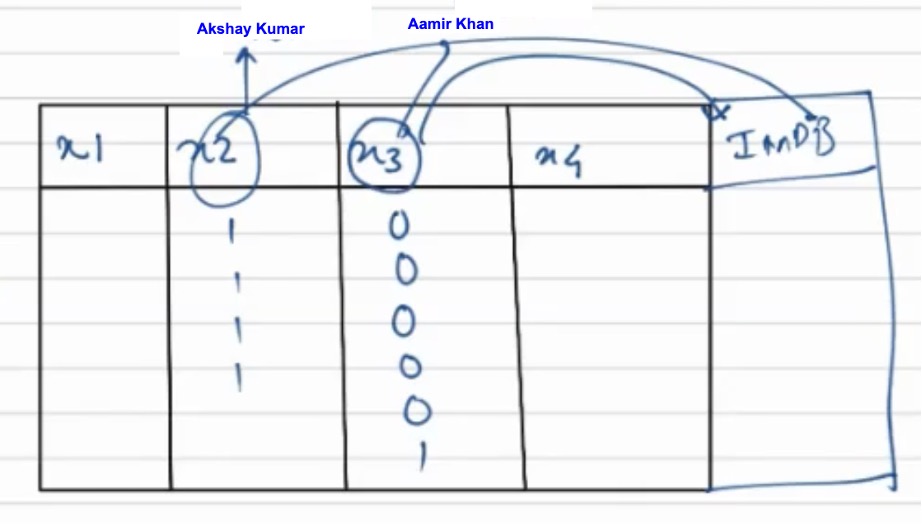 Akshay Kumar
Aamir Khan
x1 x2 x3 x4 ImDB
1 0
1 0
1 0
1 0
0
1